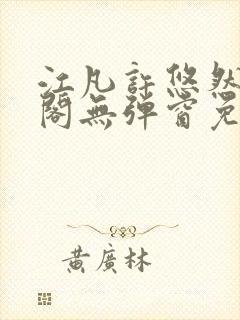 江凡許悠然
閣無彈窗免
黃廣林